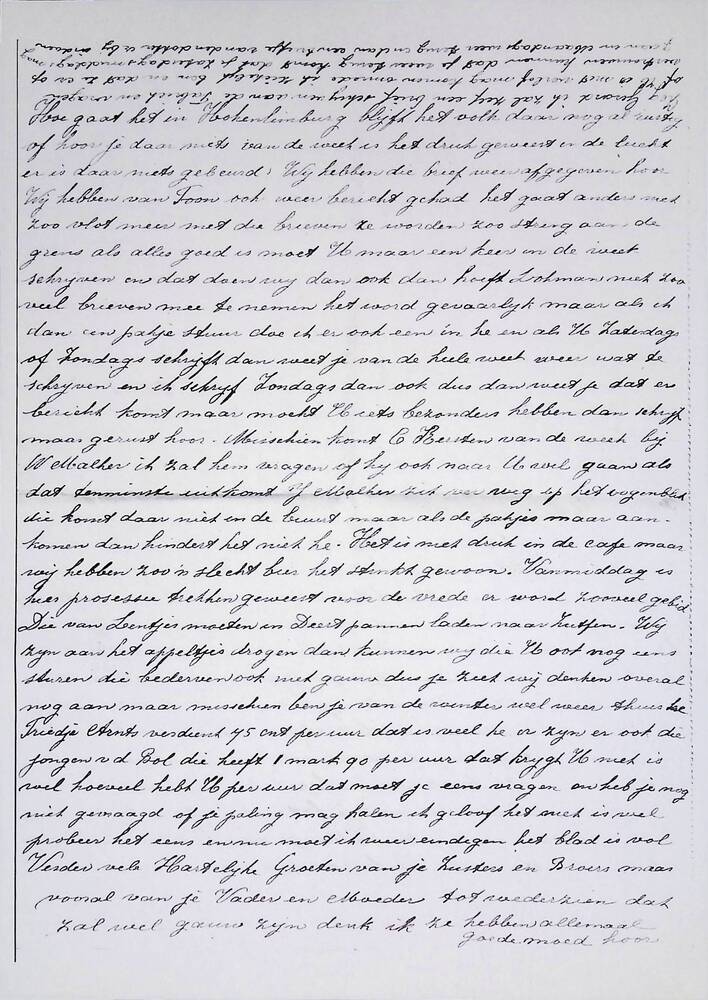 Hoe gaat het in Hohenlimburg blijft het volk daar nog al rustig
of hoor je daar niets van de week is het druk geweest in de lucht
er is daar niets gebeurd? Wij hebben die brief weer afgegeven hoor
Wij hebben van Toon ook weer bericht gehad het gaat anders niet
zoo vlot meer met die brieven ze worden zoo streng aan de
grens als alles goed is moet U maar een keer in de week
schryven en dat doen wy dan ook dan hoeft Lohman niet zoo
veel brieven mee te nemen het word gevaarlyk maar als ik
dan een pakje stuur doe ik er ook een in he en als U Zaterdags
of Zondags schrijft dan weet je van de heele week weer wat te
schryven en ik schryf Zondags dan ook dus dan weet je dat er
bericht komt maar mocht U iets bezonders hebben dan schryf
maar gerust hoor. Misschien komt C Kersten van de week by
W Malher ik zal hem vragen of hy ook naar U wil gaan als
dat tenminste uitkomt Y Malher zit ver weg op het oogenblik
die komt daar niet in de buurt maar als de pakjes maar aan-
komen dan hindert het niet he. Het is niet druk in de cafe maar
wij hebben zoo'n slecht bier het stinkt gewoon. Vanmiddag is
hier prosessie trekken geweest voor de vrede er word zooveel gebid
Die van Eentjes moeten in Deert pannen laden naar Zutfen. Wy
zyn aan het appeltjes drogen dan kunnen wy die U ook nog eens
sturen die bederven ook niet gauw dus je ziet wij denken overal
nog aan maar misschien ben je van de winter wel weer thuis he
Friedje Arnts verdient 75 cnt per uur dat is veel he er zyn er ook die
jongen v d Bol die heeft 1 mark 90 per uur dat krygt U niet is
wel hoeveel hebt U per uur dat moet je eens vragen en heb je nog
niet gevraagd of je paling mag halen ik geloof het niet is wel
probeer het eens en nu moet ik weer eindigen het blad is vol
Verder vele Hartelijke Groeten van je Zusters en Broers maar
vooral van je Vader en Moeder tot wederzien dat
zal wel gauw zijn denk ik ze hebben allemaal
goede moed hoor